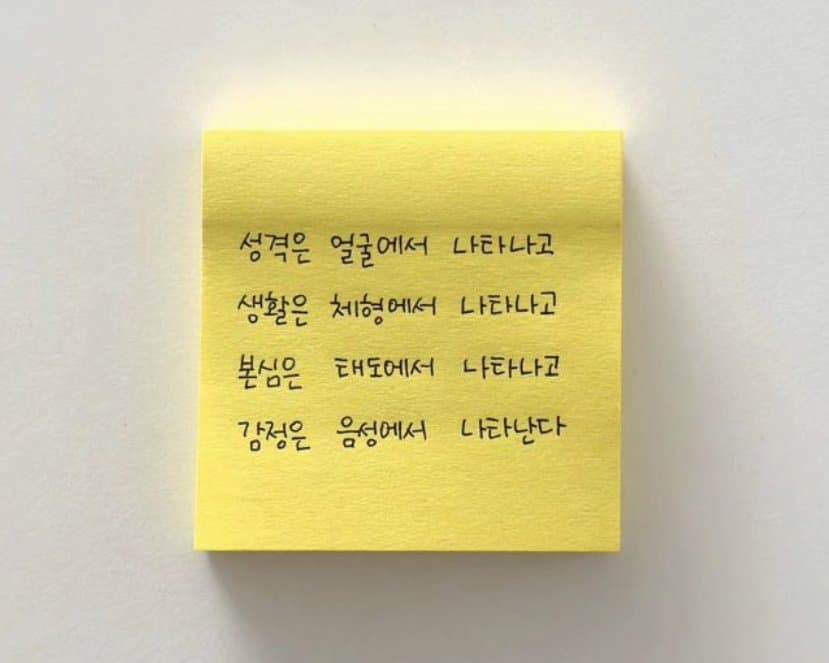 성격은 얼굴에서 나타나고
생활은 체형에서 나타나고
본심은 태도에서 나타나고
감정은 음성에서 나타난다